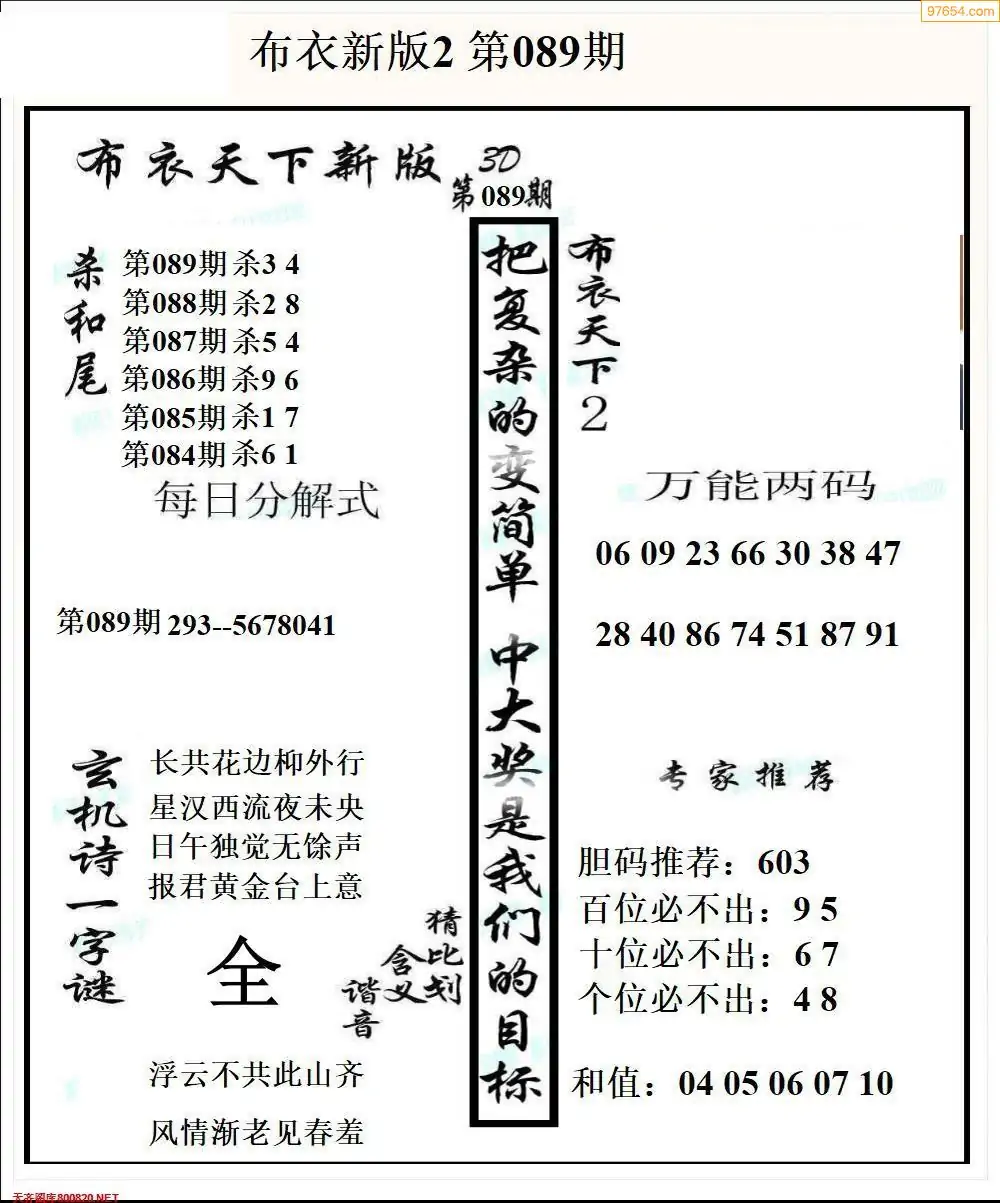 97654.com
布衣新版2 第089期
布衣天下新版
3D
第089期
杀和尾
第089期 杀3 4
第088期 杀2 8
第087期 杀5 4
第086期 杀9 6
第085期 杀1 7
第084期 杀6 1
每日分解式
第089期 293--5678041
玄机诗一字谜
长共花边柳外行
星汉西流夜未央
日午独觉无馀声
报君黄金台上意
全
猜比划
含义
谐音
浮云不共此山齐
风情渐老见春羞
把复杂的变简单 中大奖是我们的目标
布衣天下2
万能两码
06 09 23 66 30 38 47
28 40 86 74 51 87 91
专家推荐
胆码推荐：603
百位必不出：9 5
十位必不出：6 7
个位必不出：4 8
和值：04 05 06 07 10
天齐图库800820.NET